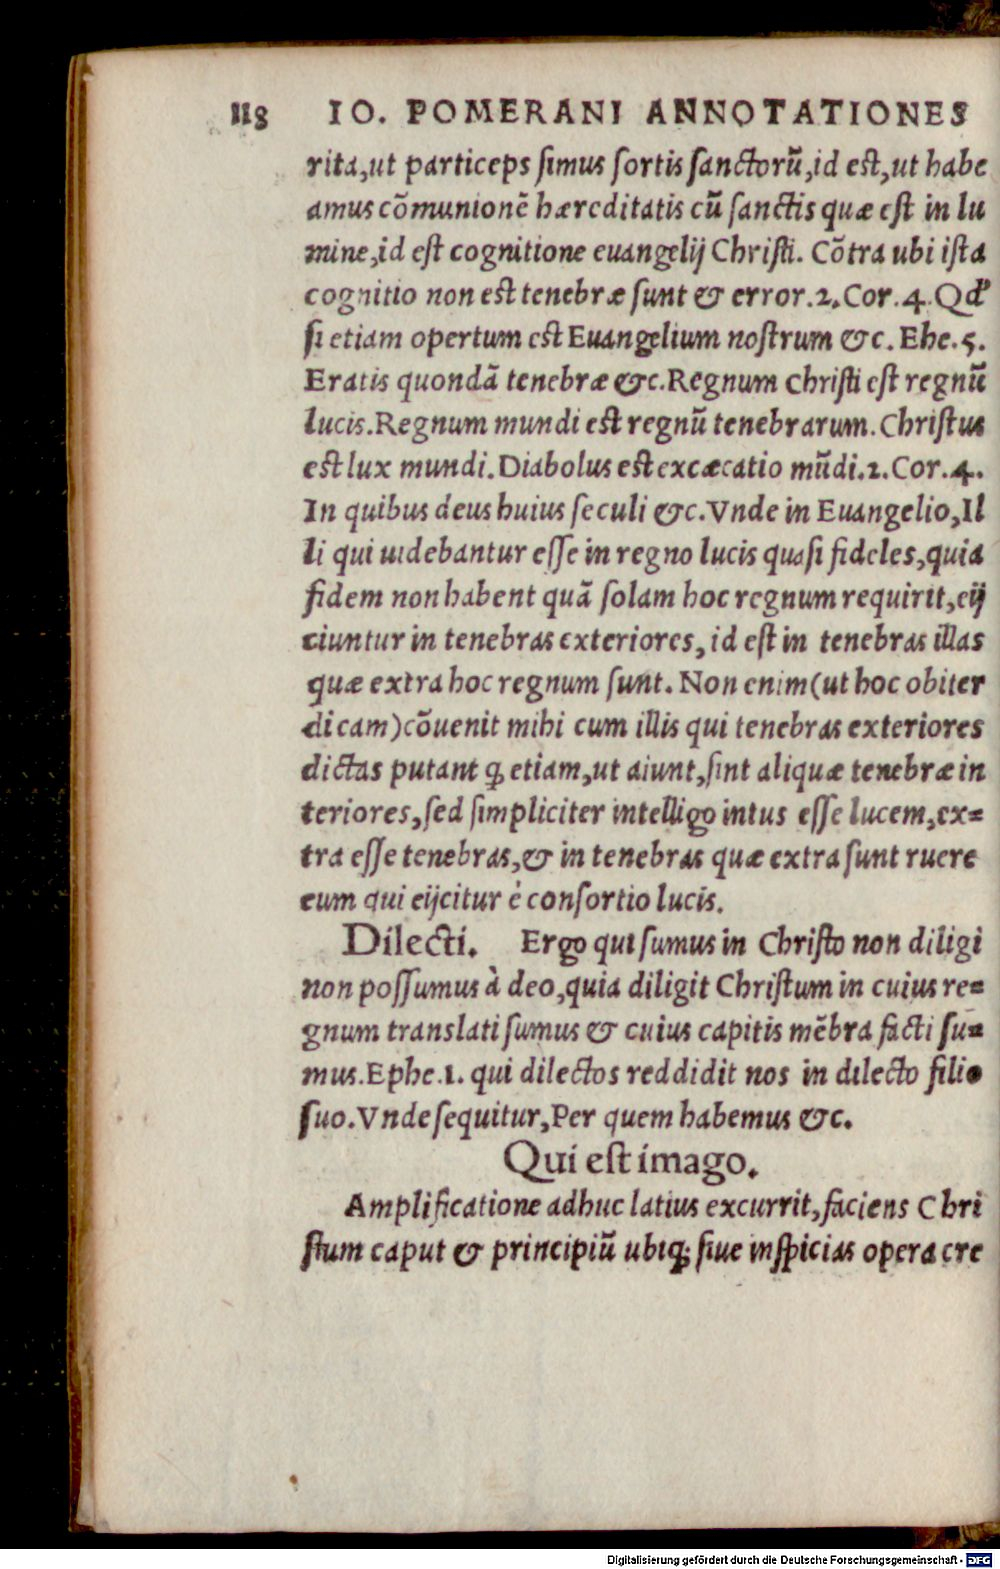 118 IO. POMERANI ANNOTATIONES
rita,ut particeps simus sortis sanctorū,id est,ut habe
amus cōmunionē hæreditatis cū sanctis quæ est in lu
mine,id est cognitione euangelij Christi. Cōtra ubi ista
cognitio non est tenebræ sunt & error.2.Cor.4.Qd'
si etiam opertum est Euangelium nostrum &c. Ehe.5.
Eratis quondā tenebræ &c.Regnum Christi est regnū
lucis.Regnum mundi est regnū tenebrarum.Christus
est lux mundi.Diabolus est excæcatio mūdi.2.Cor.4.
In quibus deus huius seculi &c.Vnde in Euangelio,Il
li qui uidebantur esse in regno lucis quasi fideles,quia
fidem non habent quā solam hoc regnum requirit,eij
ciuntur in tenebras exteriores, id est in tenebras illas
quæ extra hoc regnum sunt. Non enim(ut hoc obiter
dicam)cōuenit mihi cum illis qui tenebras exteriores
dictas putant ꝙ etiam,ut aiunt,sint aliquæ tenebræ in
teriores,sed simpliciter intelligo intus esse lucem,ex=
tra esse tenebras,& in tenebras quæ extra sunt ruere
eum qui eijcitur è consortio lucis.
Dilecti. Ergo qui sumus in Christo non diligi
non possumus à deo,quia diligit Christum in cuius re=
gnum translati sumus & cuius capitis mēbra facti su=
mus.Ephe.1. qui dilectos reddidit nos in dilecto filio
suo.Vnde sequitur,Per quem habemus &c.
Qui est imago.
Amplificatione adhuc latius excurrit,faciens Chri
stum caput & principiū ubiq; siue inspicias opera cre
Digitalisierung gefördert durch die Deutsche Forschungsgemeinschaft - DFG